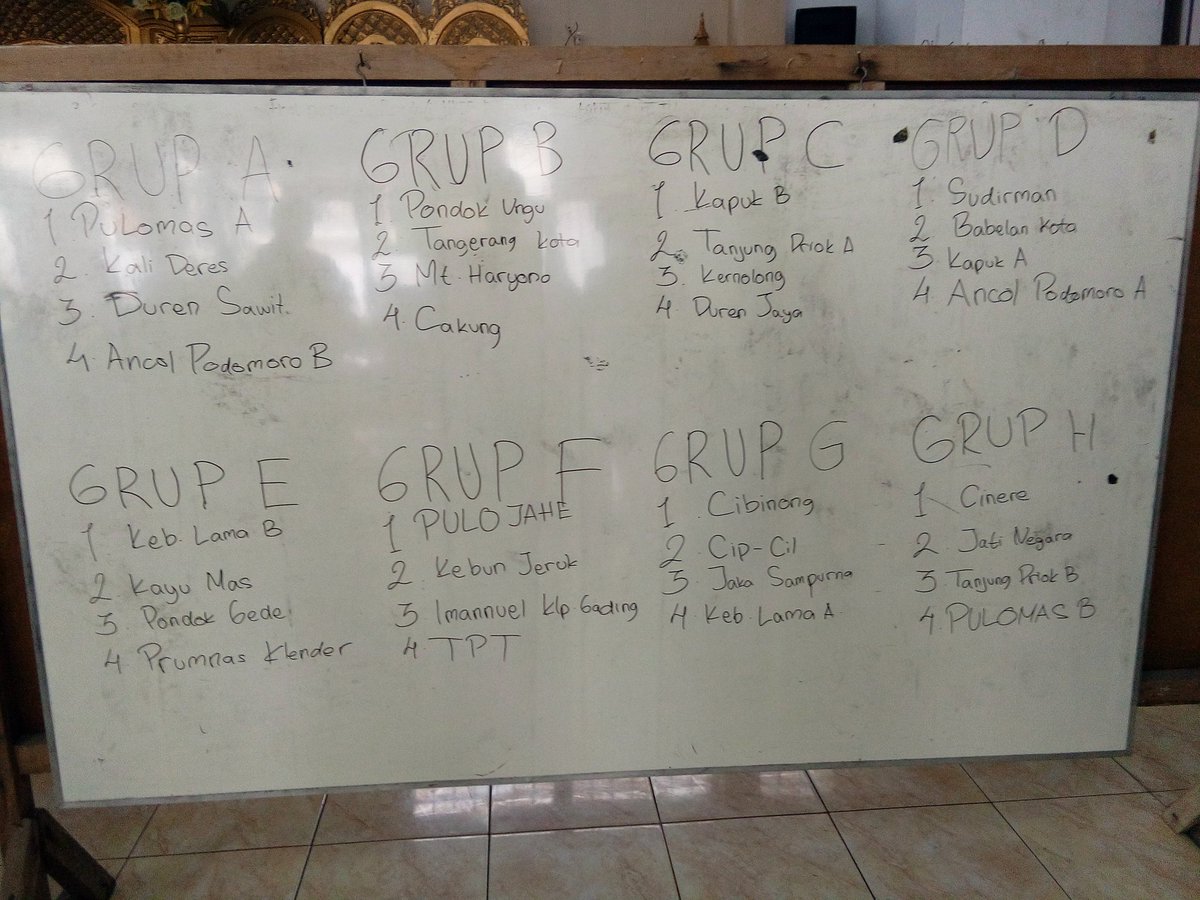 GRUP A
1 PULOMAS A
2. Kali Deres
3. Duren Sawit.
4. Ancol Podomoro B
GRUP B
1 Pondok Ungu
2. Tangerang kota
3 Mt. Haryono
4. Cakung
GRUP C
1. Kapuk B
2. Tanjung Priok A
3. Kernolong
4. Duren Jaya
GRUP D
1. Sudirman
2 Babelan kota
3. Kapuk A
4. Ancol Podomoro A
GRUP E
1 Keb. Lama B
2. Kayu Mas
3. Pondok Gede
4 Prumnas Klender
GRUP F
1 PULO JAHE
2. Kebun Jeruk
3 Imannuel klp Gading
4. TPT
GRUP G
1. Cibinong
2. Cip-Cil
3. Jaka Sampurna
4. Keb. Lama A.
GRUP H
1 Cinere
2. Jati Negara
3. Tanjung Priok B
4. PULOMAS B